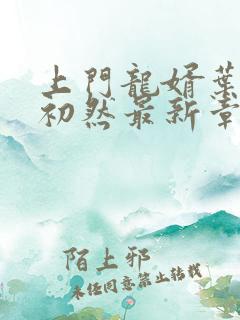 上門龍婿葉
初然最新章
陌上邪
未经同意禁止转载